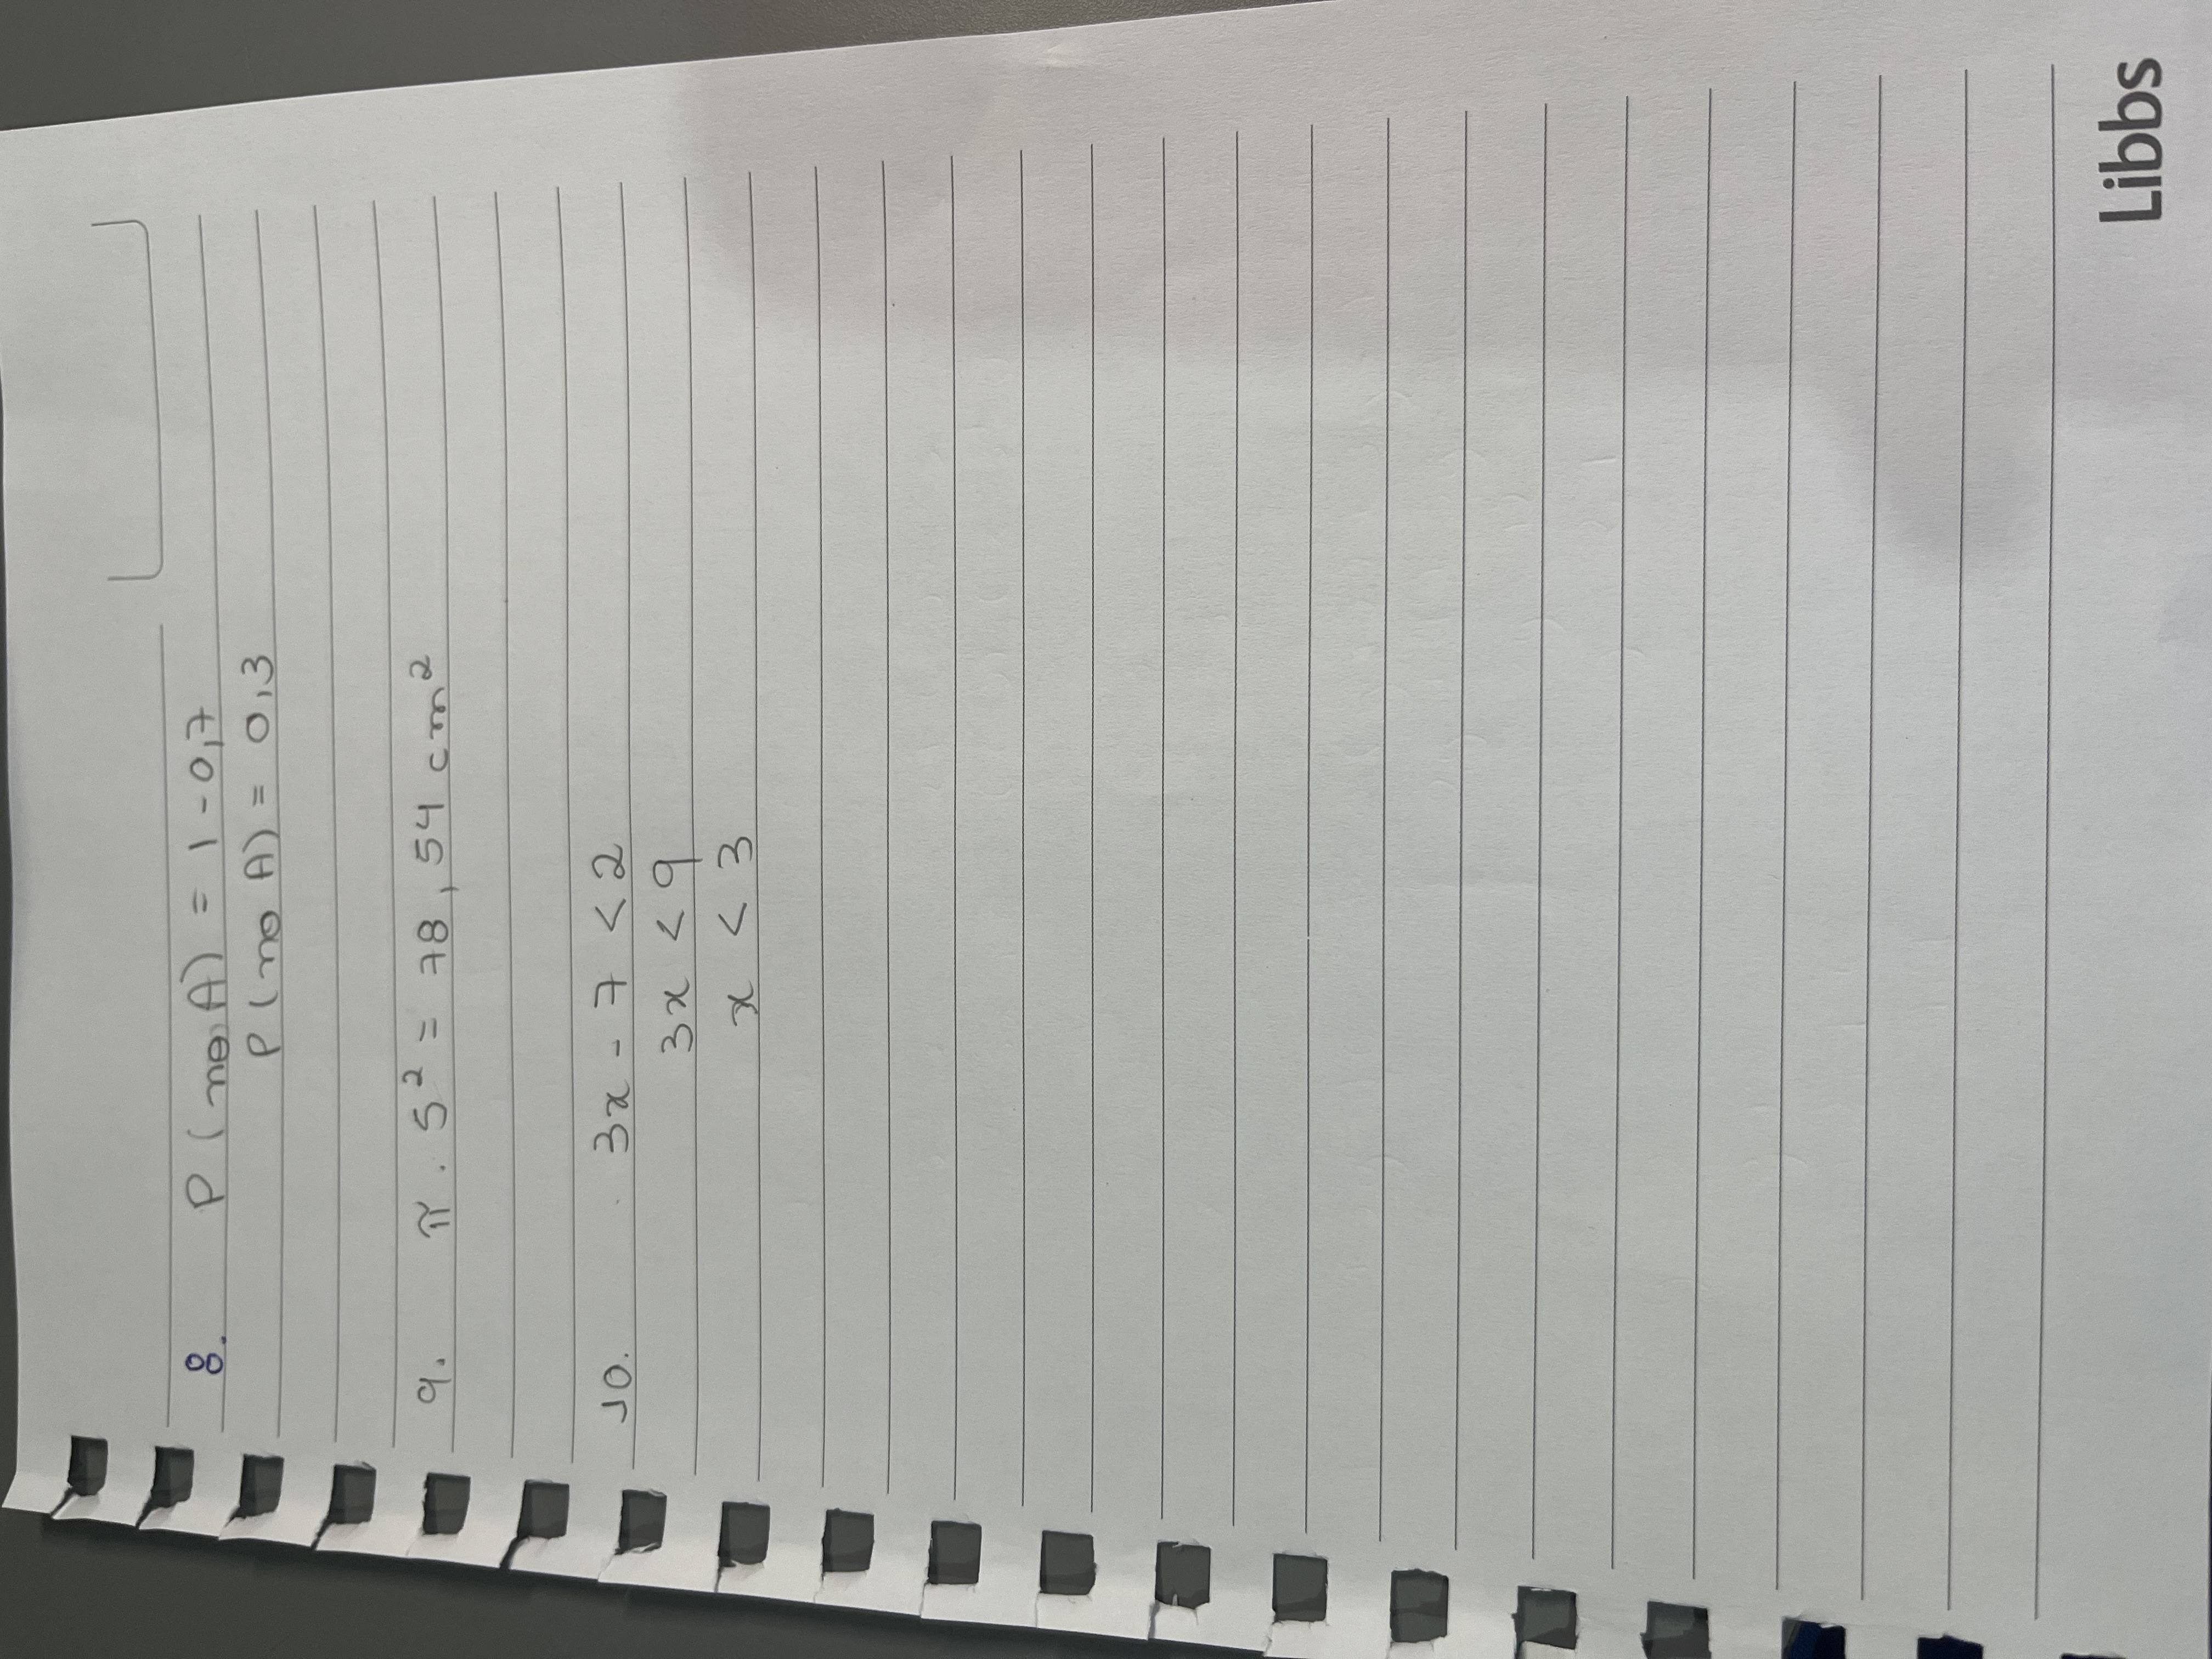 8. P (no A) = 1 - 0,7
P (no A) = 0,3
9. π . 5² = 78,54 cm²
10. 3x - 7 < 2
3x < 9
x < 3
Libbs